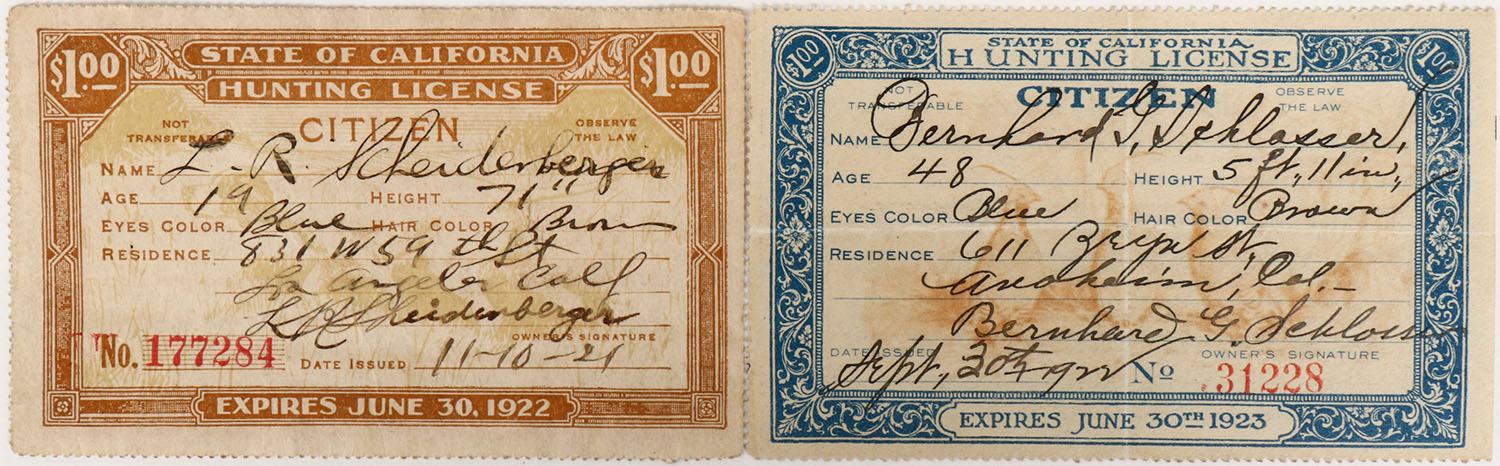 $1.00 STATE OF CALIFORNIA $1.00
HUNTING LICENSE
NOT TRANSFERABLE CITIZEN OBSERVE THE LAW
NAME L. R. Scheidenberger
AGE 19 HEIGHT 71"
EYES COLOR Blue HAIR COLOR Brown
RESIDENCE 831 W 59 th St
Los Angeles Calif
L R Scheidenberger
OWNER'S SIGNATURE
No. 177284 DATE ISSUED 11-10-21
EXPIRES JUNE 30, 1922
$1.00 STATE OF CALIFORNIA $1.00
HUNTING LICENSE
NOT TRANSFERABLE CITIZEN OBSERVE THE LAW
NAME Bernhard G. Schlosser,
AGE 48 HEIGHT 5 ft., 11 in.,
EYES COLOR Blue HAIR COLOR Brown
RESIDENCE 611 St.,
Anaheim, Cal.—
Bernhard G. Schlosser
DATE ISSUED OWNER'S SIGNATURE
Sept., 30th 1922 No 31228
EXPIRES JUNE 30TH 1923